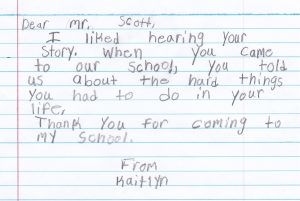 Dear mr. Scott,
I liked hearing your
Story. when you came
to our School, you told
us about the hard things
you had to do in your
life,
Thank you for coming to
my School.
From
Kaitlyn